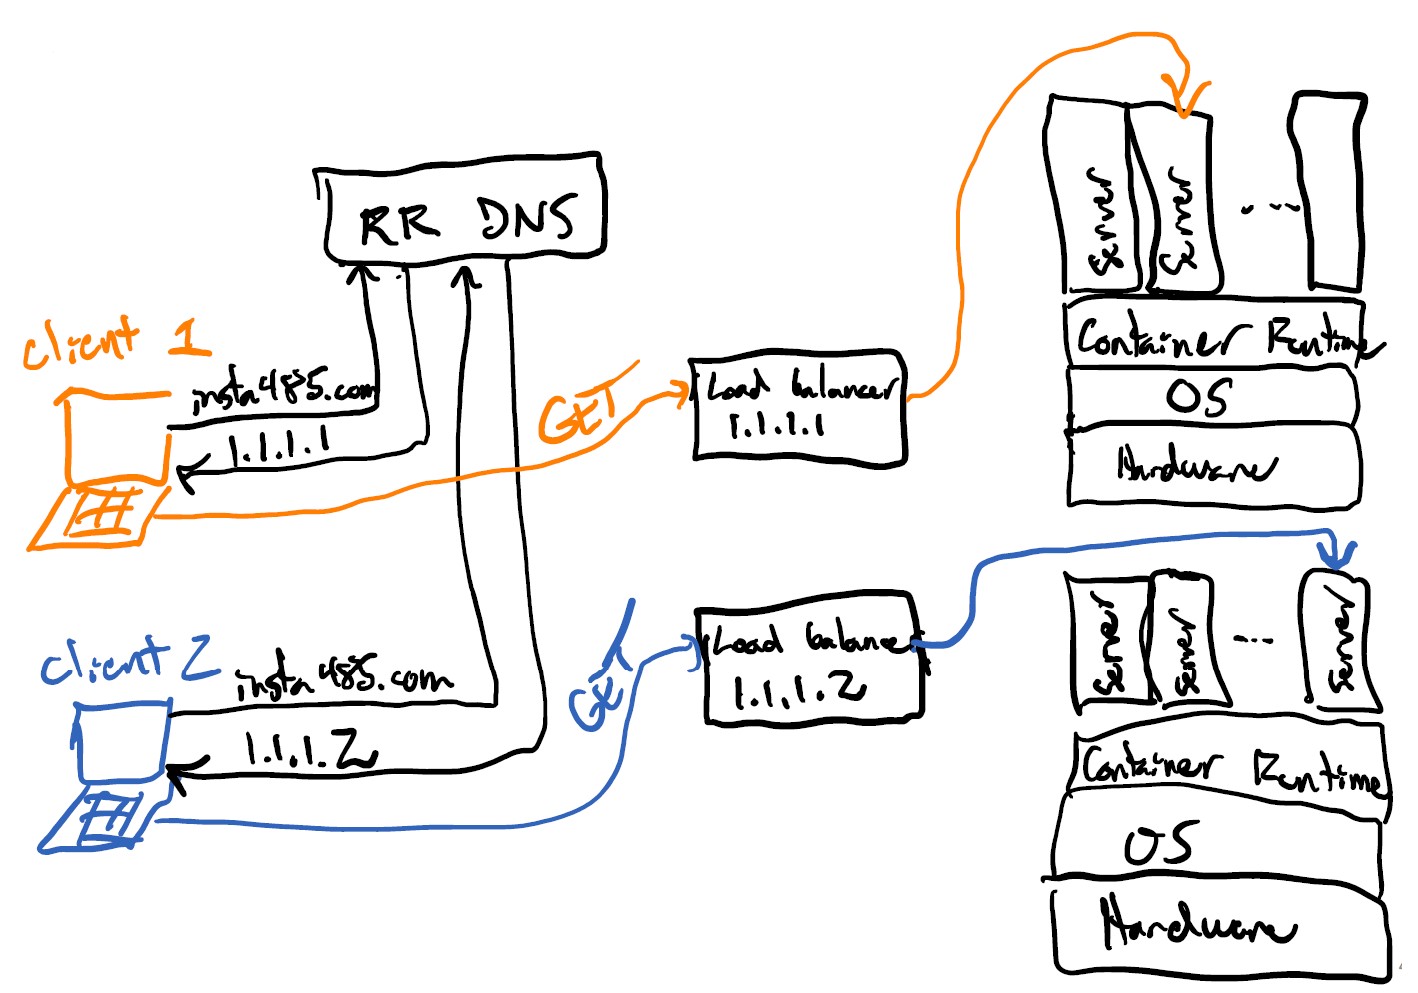 RR DNS
client 1
insta485.com
1.1.1.1
GET
Load balancer
1.1.1.1
Server
Server
...
Container Runtime
OS
Hardware
client 2
insta485.com
1.1.1.2
GET
Load balancer
1.1.1.2
Server
Server
...
Server
Container Runtime
OS
Hardware